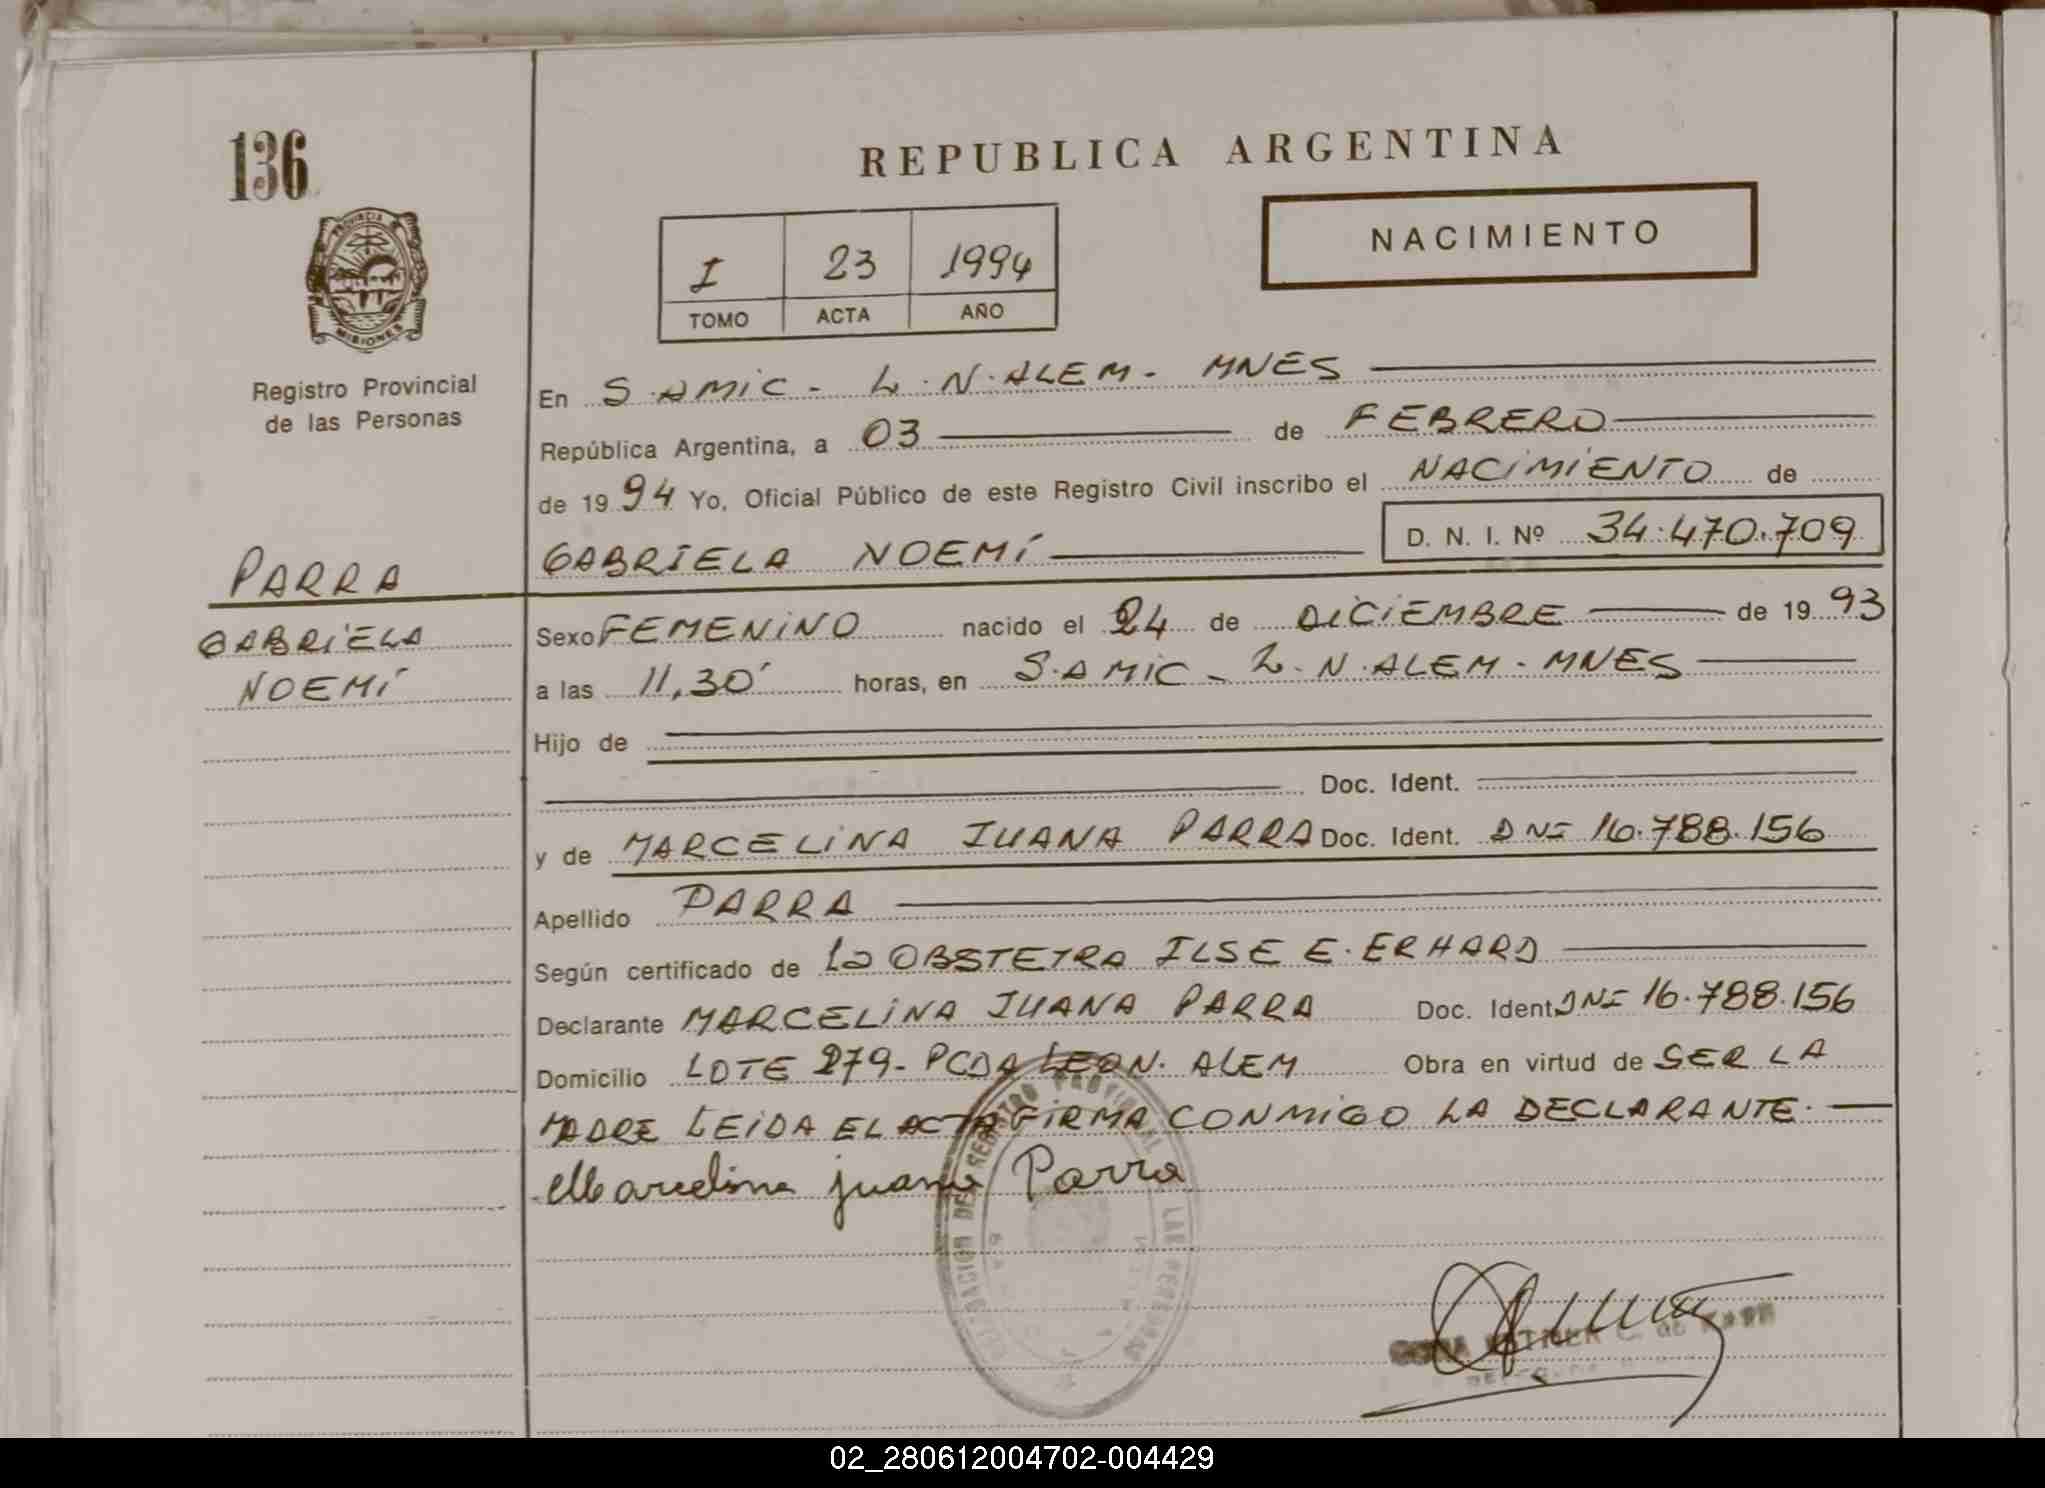 136
REPUBLICA ARGENTINA
NACIMIENTO
I 23 1994
TOMO ACTA AÑO
PROVINCIA
MISIONES
Registro Provincial
de las Personas
En S.AMIC - L.N.ALEM - MNES
República Argentina, a 03 de FEBRERO
de 1994 Yo, Oficial Público de este Registro Civil inscribo el NACIMIENTO de
GABRIELA NOEMÍ D. N. I. Nº 34.470.709
PARRA
GABRIELA
NOEMÍ
Sexo FEMENINO nacido el 24 de DICIEMBRE de 1993
a las 11,30' horas, en S.AMIC - L.N.ALEM - MNES
Hijo de
Doc. Ident.
y de MARCELINA JUANA PARRA Doc. Ident. DNI 16.788.156
Apellido PARRA
Según certificado de La OBSTETRA ILSE E. ERHARD
Declarante MARCELINA JUANA PARRA Doc. Ident. DNI 16.788.156
Domicilio LOTE 279 - PCDA LEON. ALEM Obra en virtud de SER LA
MADRE LEIDA EL ACTA FIRMA CONMIGO LA DECLARANTE.
Marcelina juana Parra
02_280612004702-004429